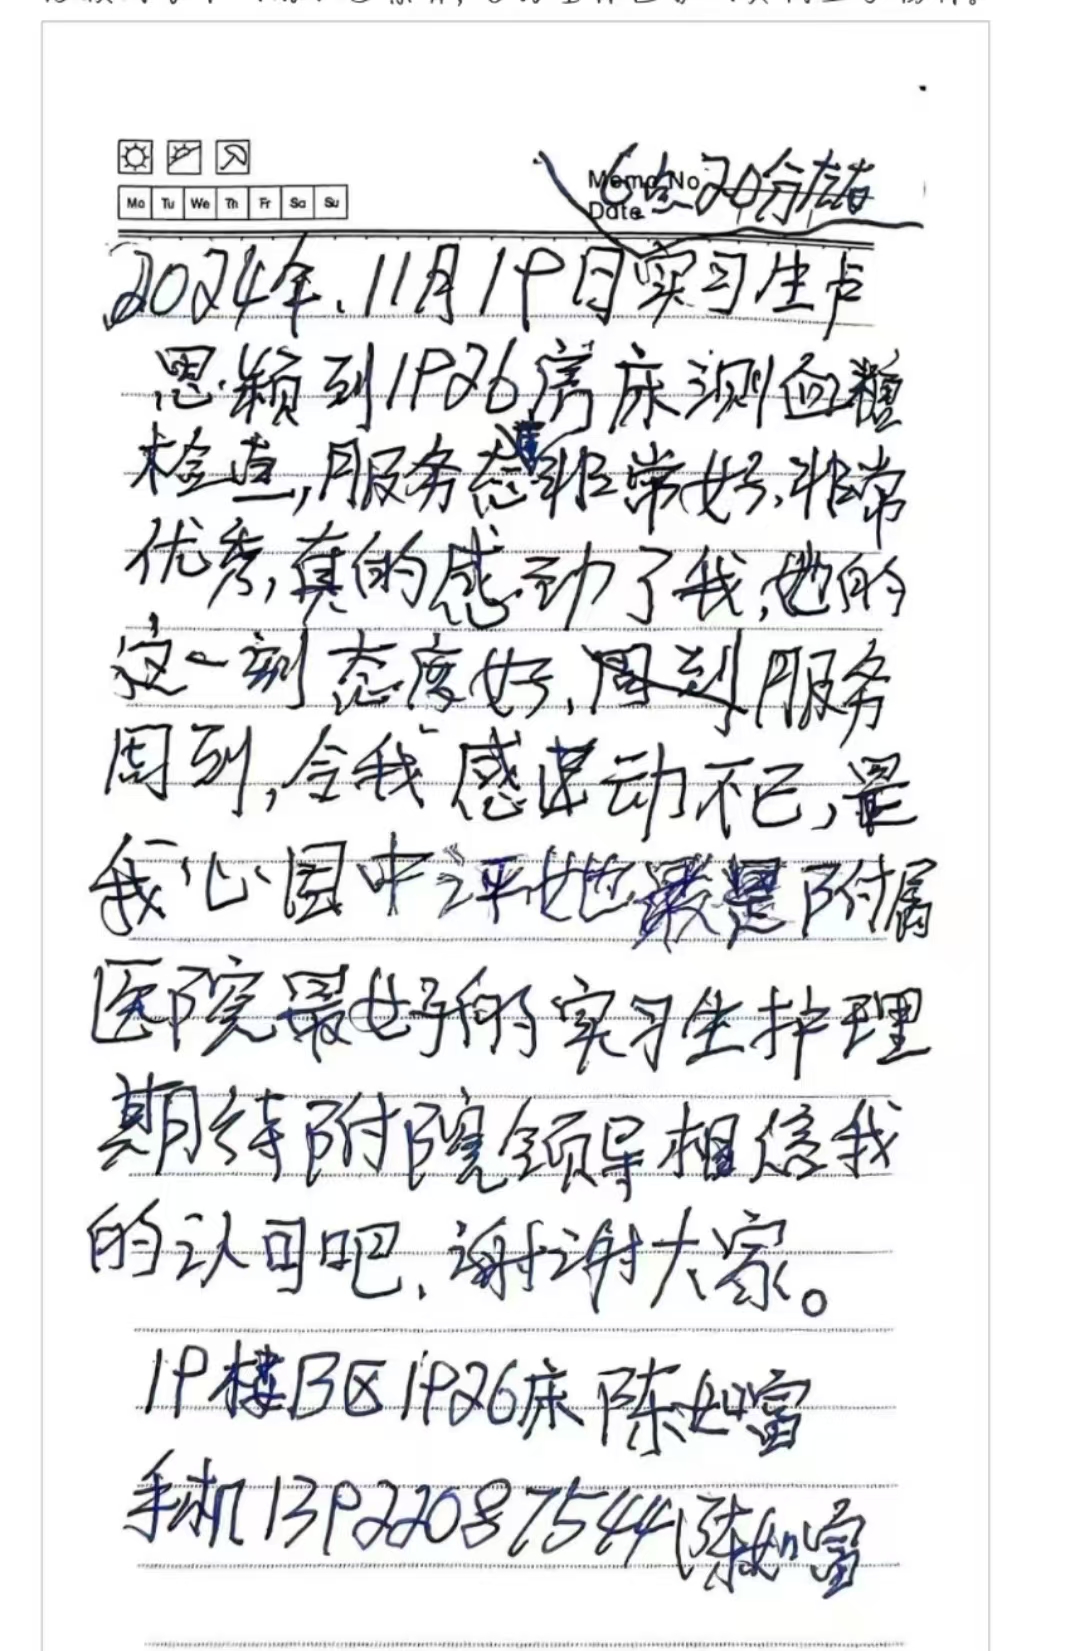 Mo Tu We Th Fr Sa Su
Memo No.
Date
6点20分左右
2024年.11月19日实习生卢
思颖到1926房床测血糖
检查,服务态非常好,非常
优秀,真的感动了我,她的
这一刻态度好,周到服务
周到,令我感动不已,是
我心目中评她是附属
医院最好的实习生护理
期待附院领导相信我
的认可吧,谢谢大家。
19楼B区1926床陈如富
手机13922087544陈如富